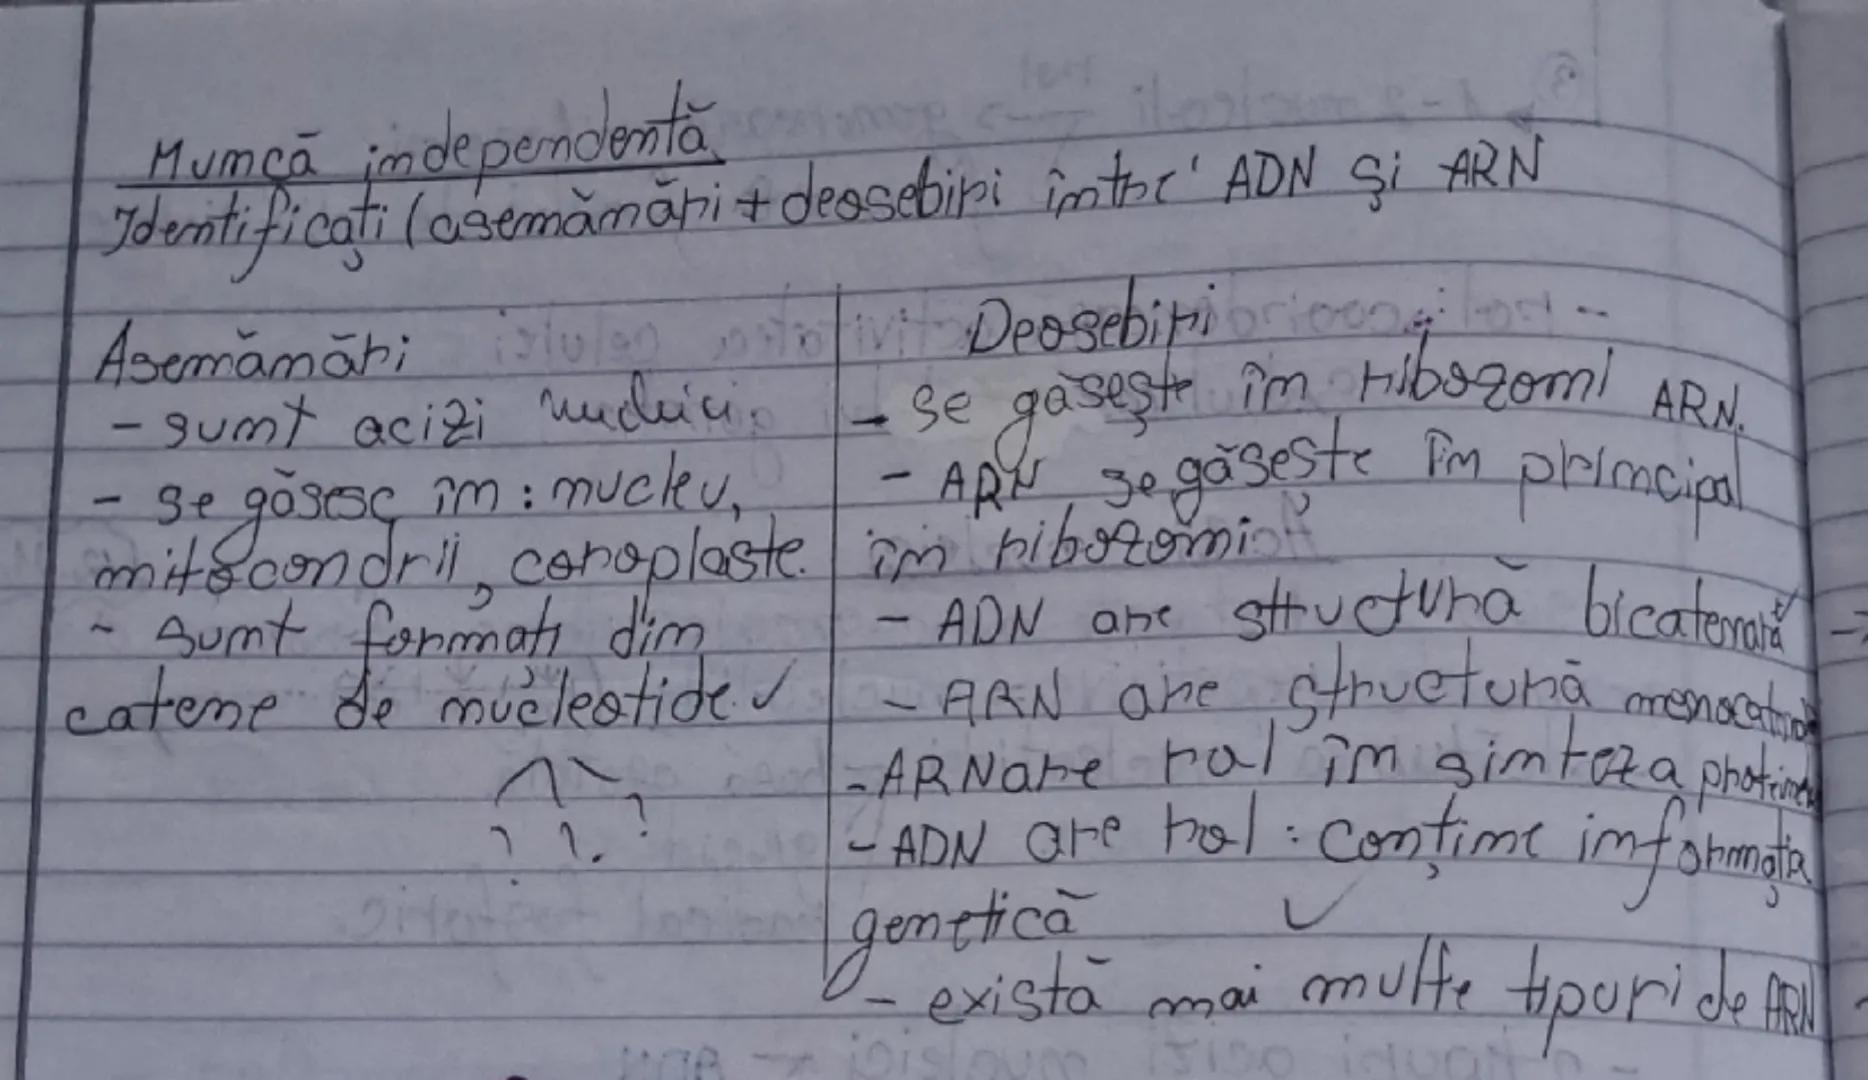 Muncă independentă
Identificați (asemănări + deosebiri între ADN și ARN
Asemănări
- sunt acizi nucleici
- se găsesc în: nucleu,
mitocondrii, coroplaste.
- sunt formați din
catene de nucleotide ✓
Deosebiri
- se găsește în ribozomi ARN.
- ARN se găsește în principal
în ribozomi
- ADN are structură bicatenară
- ARN are structură monocatenară
- ARN are rol în sinteza proteinelor
- ADN are rol: conține informația
genetică ✓
- există mai multe tipuri de ARN